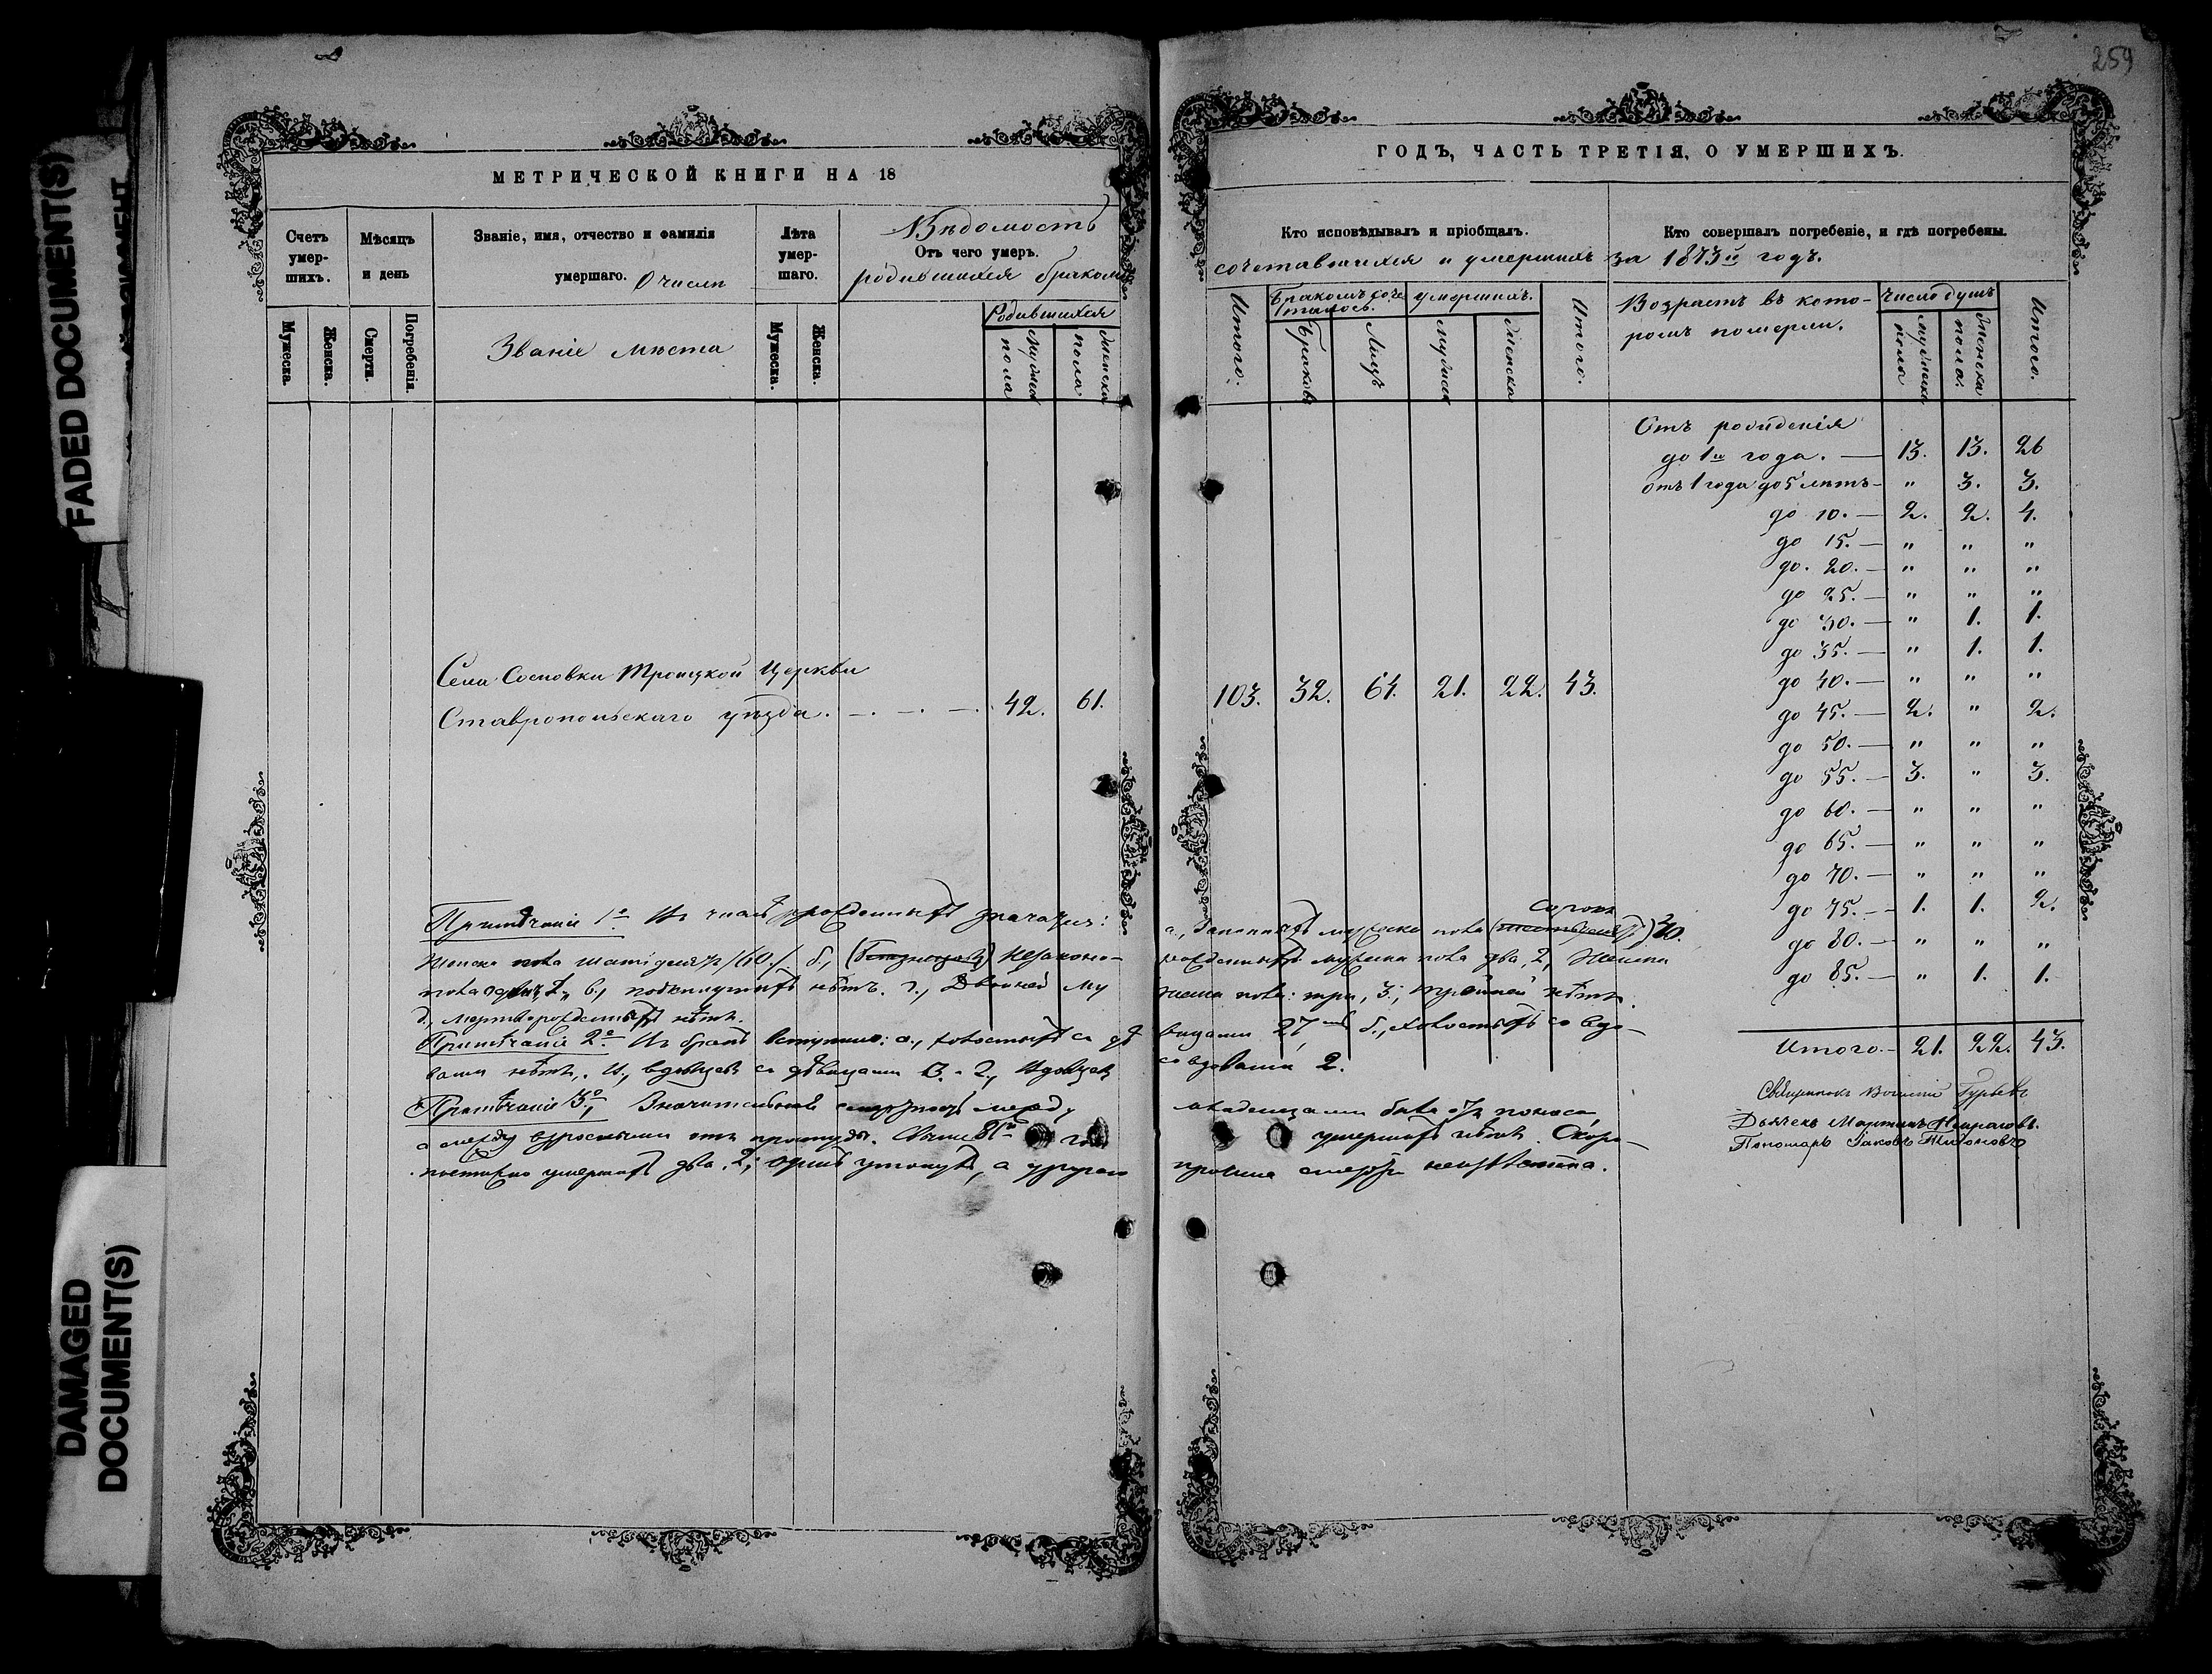 259
FADED DOCUMENT(S)
DAMAGED
DOCUMENT(S)
МЕТРИЧЕСКОЙ КНИГИ НА 18
Счетъ умер-шихъ.
Мѣсяцъ и день
Званіе, имя, отчество и фамилія умершаго.
Лѣта умер-шаго.
Отъ чего умеръ.
Мужеска.
Женска.
Смерти.
Погребенія.
Мужеска.
Женска.
О числѣ
Вѣдомость
родившихся бракомъ
Званіе мѣста
Родившихся
мужеска пола
женска пола
Села Сосновки Троицкой Церкви
Ставропольскаго уѣзда. — . — . — 42. 61.
ГОДЪ, ЧАСТЬ ТРЕТІЯ, О УМЕРШИХЪ.
Кто исповѣдывалъ и пріобщалъ.
Кто совершалъ погребеніе, и гдѣ погребены.
сочетавшихся и умершихъ за 1873й годъ.
Итого.
Бракомъ соче талось.
умершихъ.
Итого.
Браковъ
Лицъ
мужеска
женска
Возрастъ въ кото-
ромъ померли.
Число душъ
мужеска пола
женска пола.
Итого.
103. 32. 64. 21. 22. 43.
Отъ рожденія
до 1го года. — 13. 13. 26
отъ 1 года до 5 лѣтъ — " 3. 3.
до 10. — 2. 2. 4.
до 15. — " " "
до 20. — " " "
до 25. — " " "
до 30. — " 1. 1.
до 35. — " 1. 1.
до 40. — " " "
до 45. — 2. " 2.
до 50. — " " "
до 55. — 3. " 3.
до 60. — " " "
до 65. — " " "
до 70. — " " "
до 75. — 1. 1. 2.
до 80. — " " "
до 85. — " 1. 1.
Итого. — 21. 22. 43.
Примѣчаніе 1е Изъ числа рожденныхъ значатся: а, законныхъ мужеска пола сорокъ 40.
женска пола шестьдесятъ /60./ б, незаконно-рожденныхъ мужеска пола два, 2, женска
пола одна, 1, в, подкинутыхъ нѣтъ. г, Двойней му жеска пола: три, 3; тройней нѣтъ.
д, мертворожденныхъ нѣтъ.
Примѣчаніе 2е Въ бракъ вступило: а, холостыхъ съ дѣ вицами 27, б, холостыхъ со вдо-
вами нѣтъ, вдовцевъ съ дѣвицами 3. г, вдовцевъ со вдовами 2.
Примѣчаніе 3е Значительная смертность между младенцами была отъ поноса
а между взрослыми отъ простуды. Свыше умершихъ нѣтъ. Скоро-
постижно умершихъ два, 2; одинъ утонулъ, а другаго причина смерти неизвѣстна.
Священникъ Василій Гурьевъ
Дьячекъ Мартинъ
Пономарь Іаковъ Тихоновъ